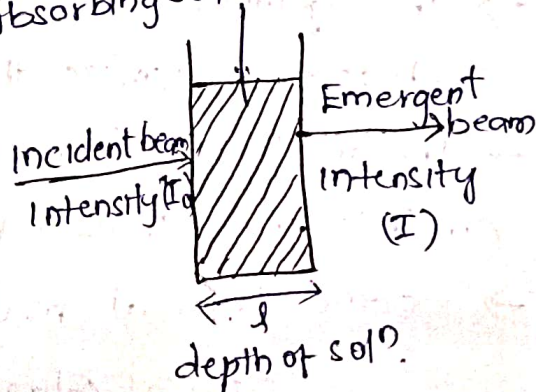 absorbing
Incident beam
Intensity (I₀
Emergent
beam
Intensity
(I)
l
depth of solⁿ.